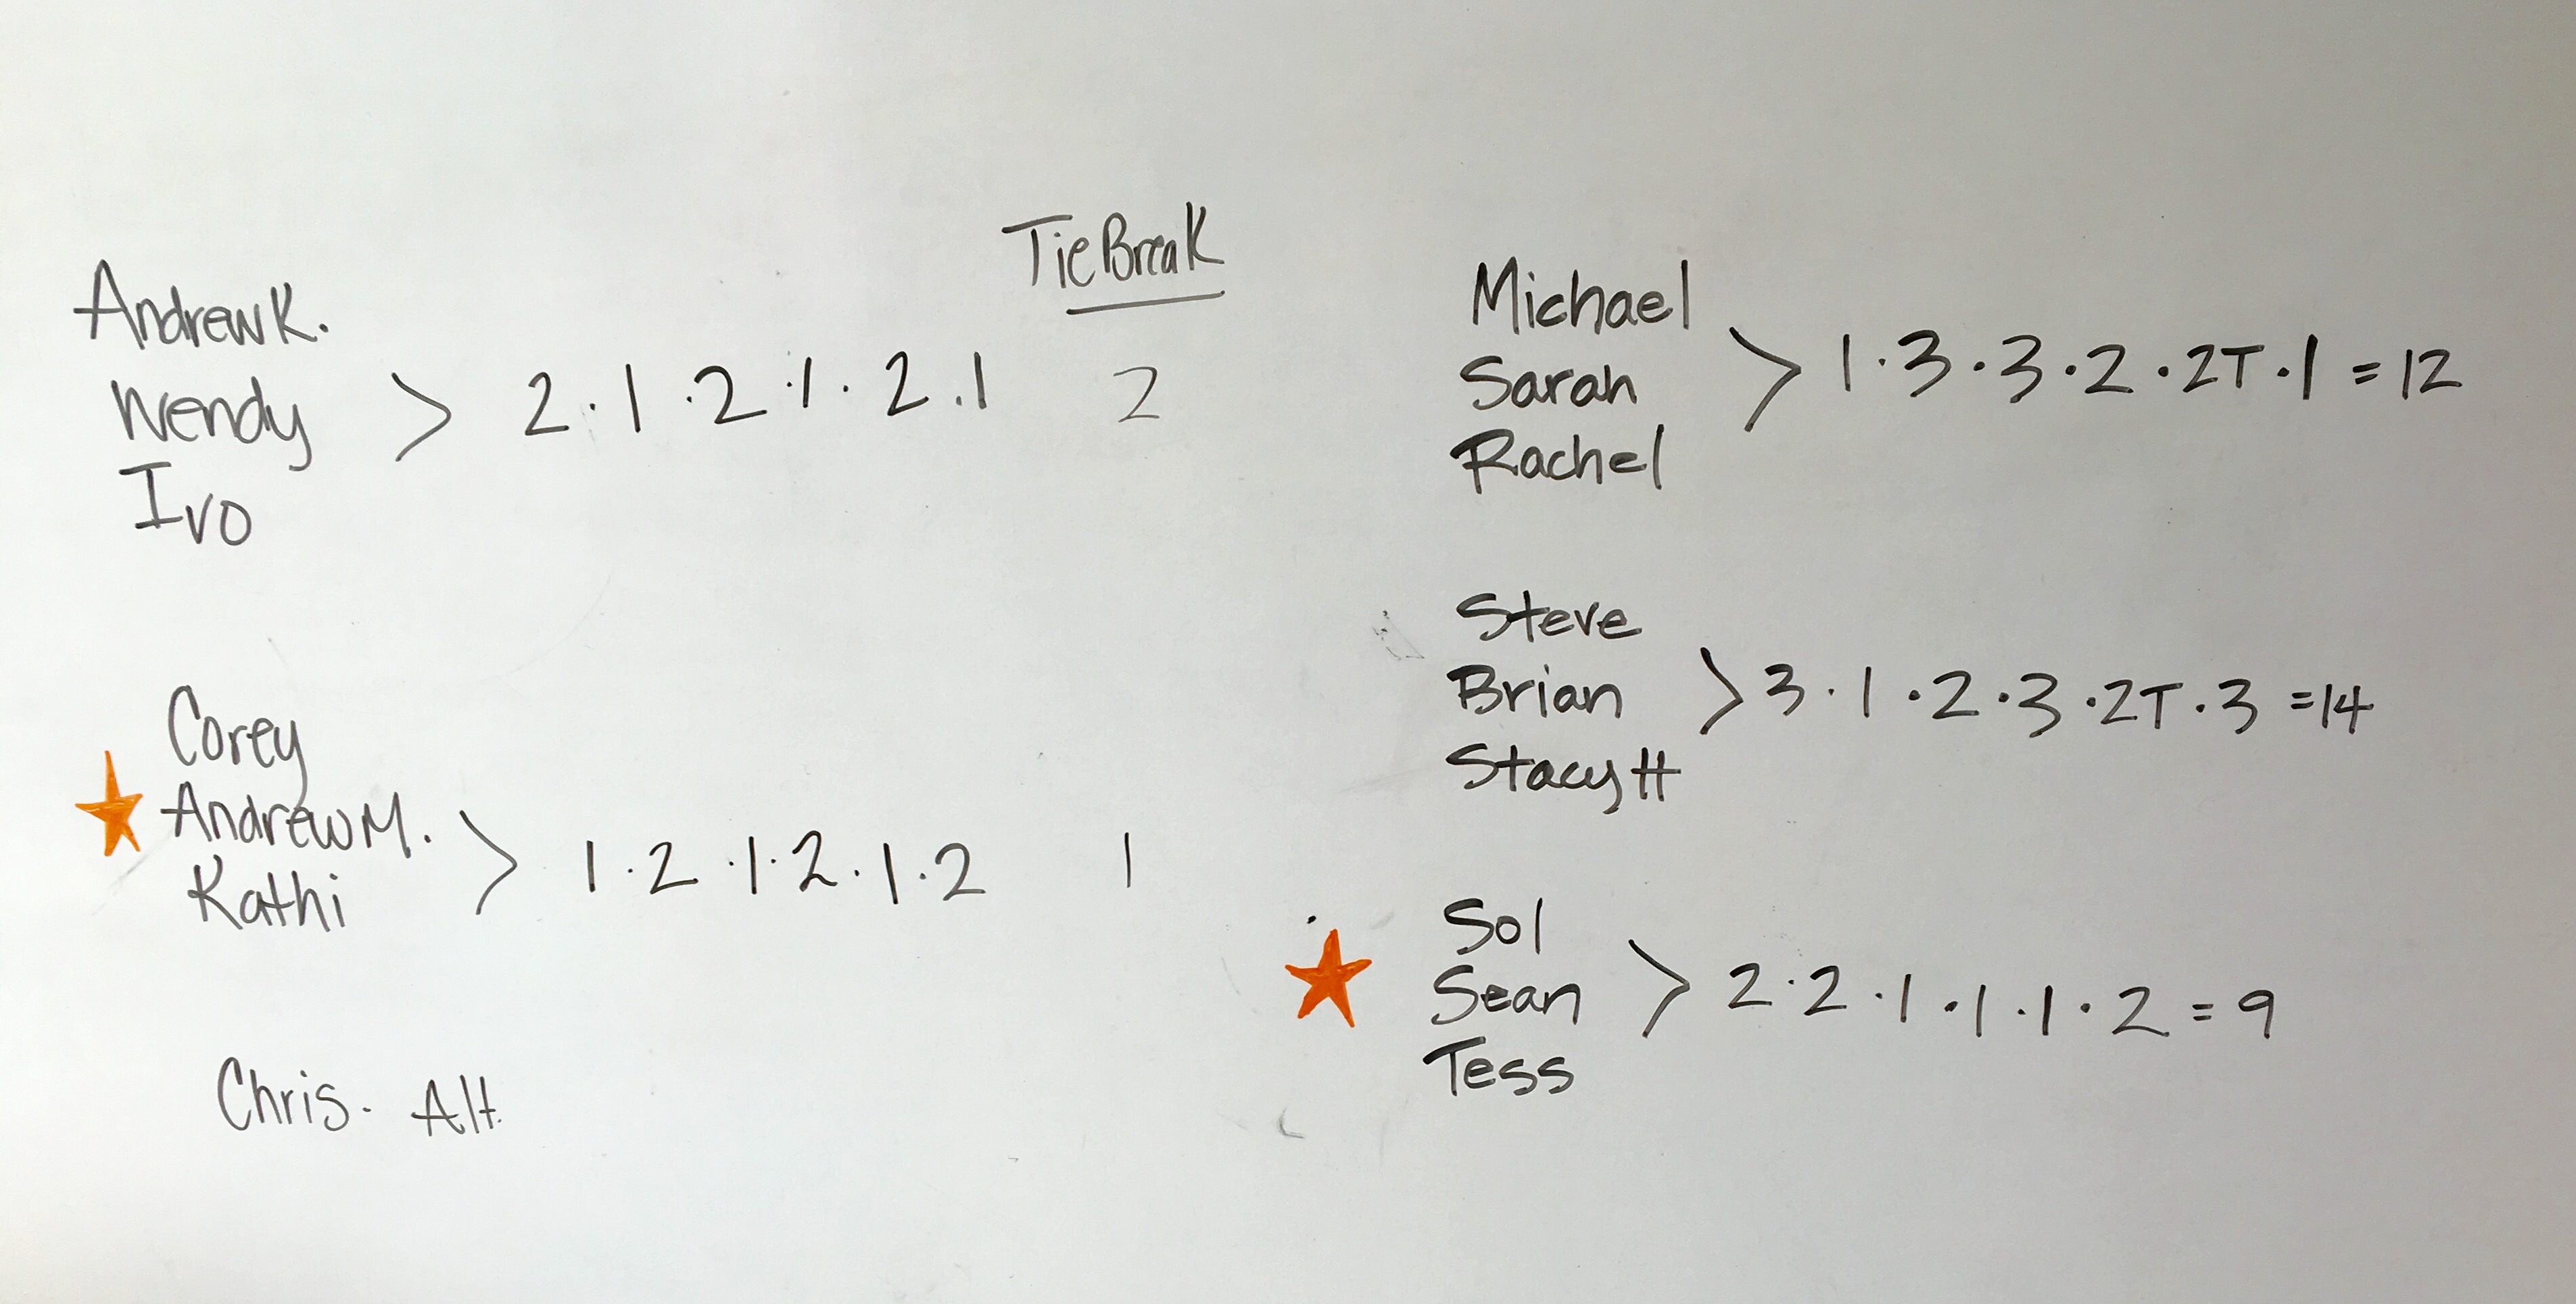 TieBreak
Andrew K.
Wendy
Ivo
> 2·1·2·1·2.1 2
Corey
Andrew M.
Kathi
> 1·2·1·2·1·2 1
Chris· Alt.
Michael
Sarah
Rachel
> 1·3·3·2·2T·1 = 12
Steve
Brian
Stacy H
> 3·1·2·3·2T·3 = 14
Sol
Sean
Tess
> 2·2·1·1·1·2 = 9